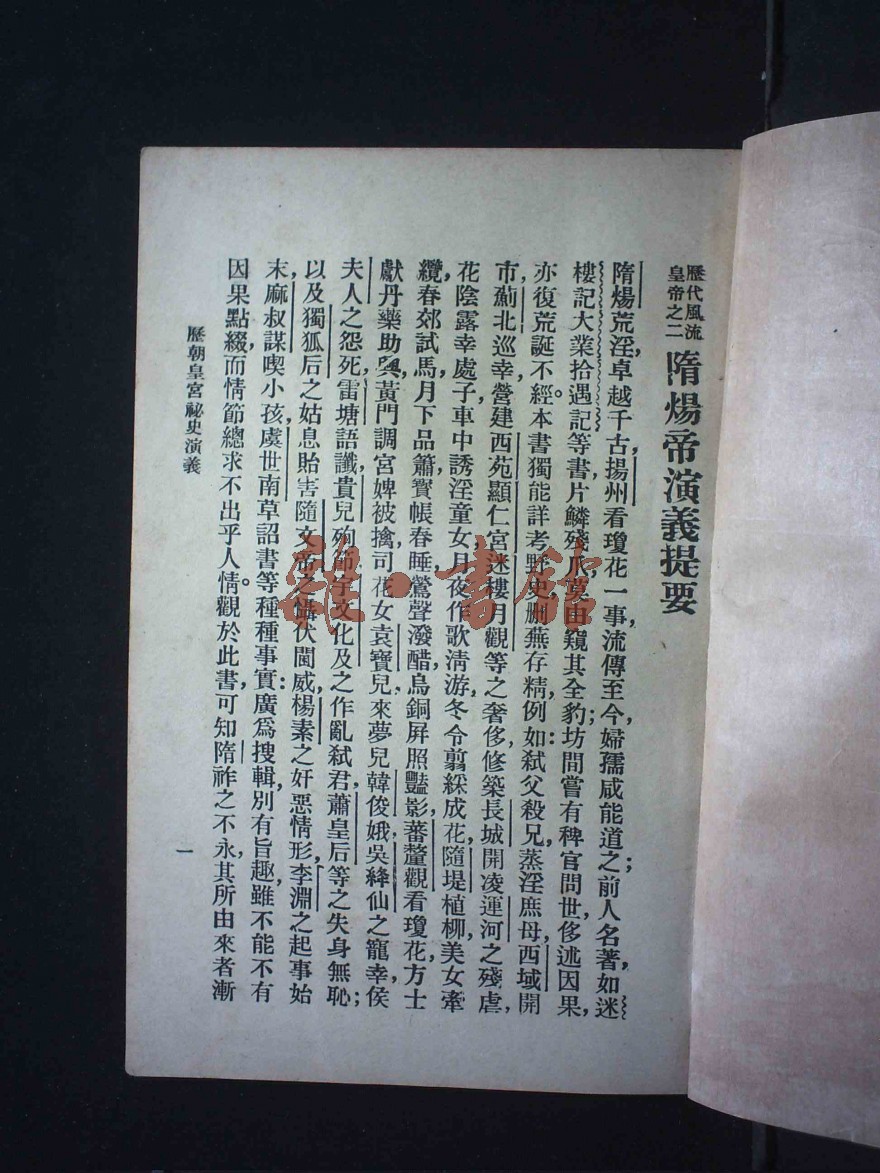 歷代風流
皇帝之二
隋煬帝演義提要
隋煬荒淫，卓越千古，揚州看瓊花一事，流傳至今，婦孺咸能道之；前人名著，如迷
樓記大業拾遇記等書，片鱗殘爪，莫由窺其全豹；坊間嘗有稗官問世，侈述因果，
亦復荒誕不經。本書獨能詳考野史，删蕪存精，例如：弒父殺兄，蒸淫庶母，西域開
市，薊北巡幸，營建西苑顯仁宮迷樓月觀等之奢侈，修築長城，開凌運河之殘虐，
花陰露幸處子，車中誘淫童女，月夜作歌清游，冬令翦綵成花，隨堤植柳，美女牽
纜，春郊試馬，月下品簫，寶帳春睡，鶯聲潑醋，烏銅屏照豔影，蕃釐觀看瓊花，方士
獻丹藥助興，黃門調宮婢被擒，司花女袁寶兒來夢兒韓俊娥吳絳仙之寵幸，侯
夫人之怨死，雷塘語讖，貴兒殉節，宇文化及之作亂弒君，蕭皇后等之失身無恥；
以及獨狐后之姑息貽害，隨文帝之懾伏閫威，楊素之奸惡情形，李淵之起事始
末，麻叔謀喫小孩，虞世南草詔書等種種事實：廣爲搜輯，別有旨趣，雖不能不有
因果點綴，而情節總求不出乎人情。觀於此書，可知隋祚之不永，其所由來者漸
歷朝皇宮祕史演義
一
雜·書館